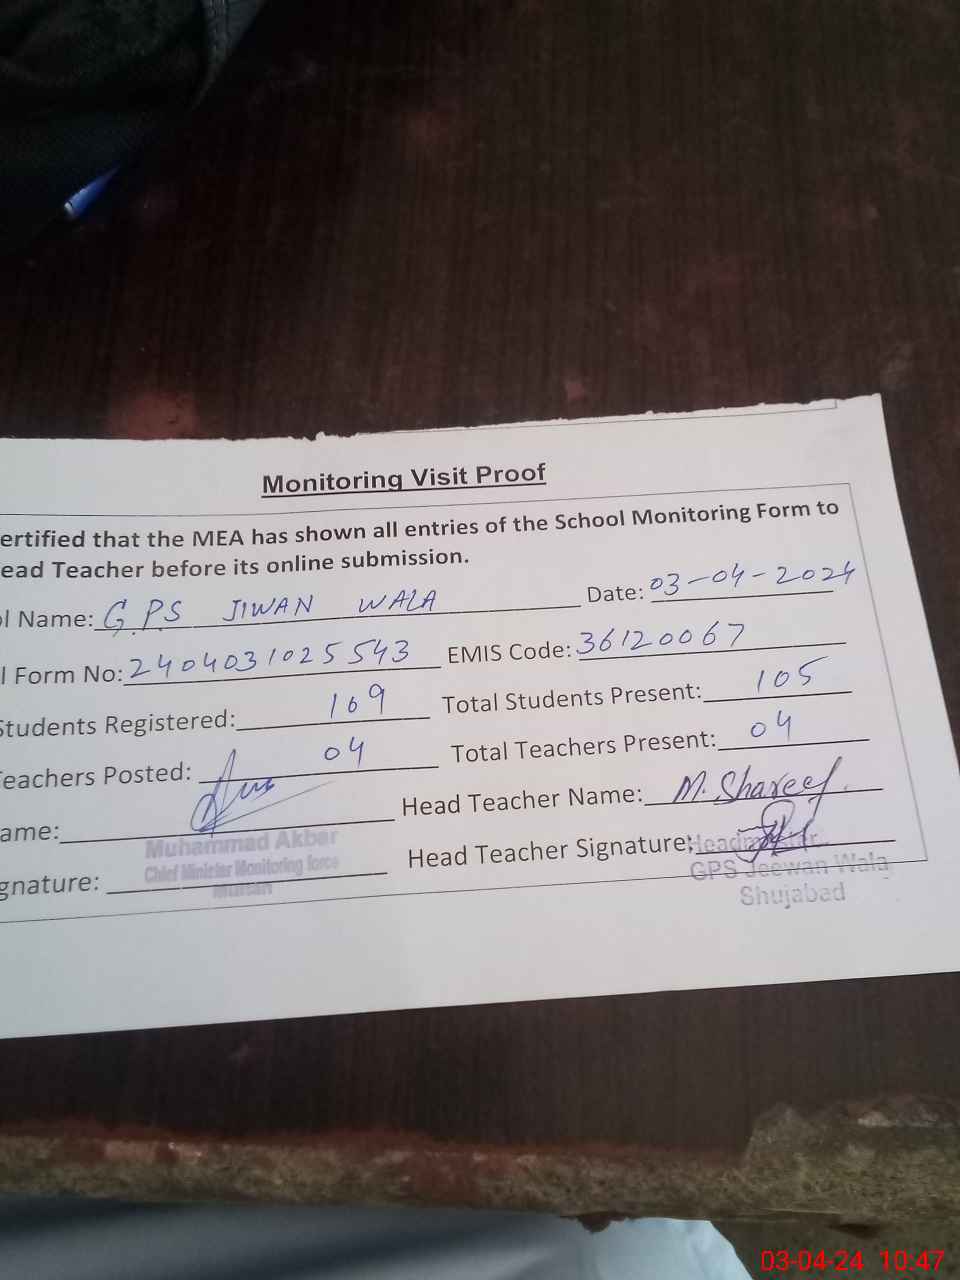 Monitoring Visit Proof
ertified that the MEA has shown all entries of the School Monitoring Form to
ead Teacher before its online submission.
ol Name: G.P.S JIWAN WALA Date: 03-04-2024
l Form No: 2404031025543 EMIS Code: 36120067
Students Registered: 109 Total Students Present: 105
Teachers Posted: 04 Total Teachers Present: 04
ame: Head Teacher Name: M. Shareef.
Muhammad Akbar
Chief Minister Monitoring force
Multan
gnature: Head Teacher Signature:
Headmaster
GPS Jeewan Wala
Shujabad
03-04-24 10:47